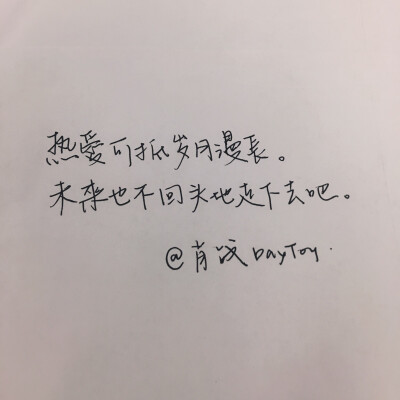 热爱可抵岁月漫長。
未来也不回头地走下去吧。
@肖战DayToy.